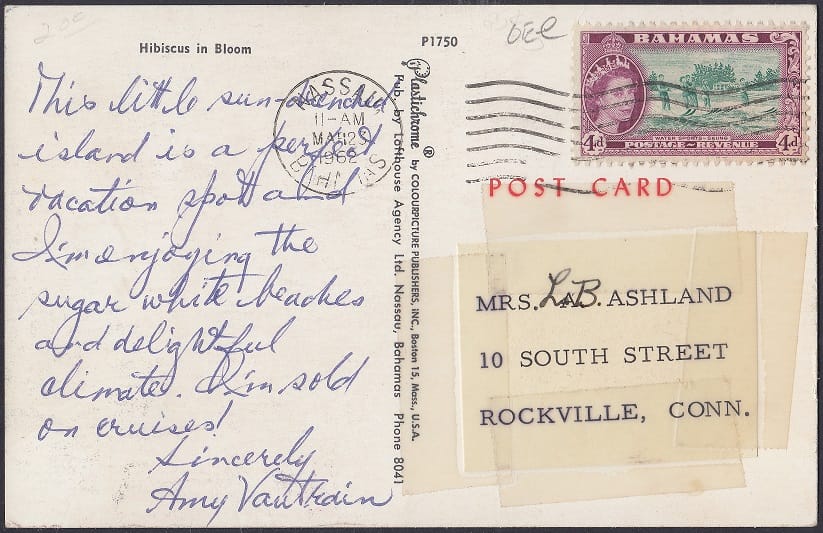 200
Hibiscus in Bloom
P1750
This little sun-drenched
island is a perfect
vacation spot and
I'm enjoying the
sugar white beaches
and delightful
climate. I'm sold
on cruises!
Sincerely
Amy Vautrain
NASSAU
11-AM
1962
BAHAMAS
Plastichrome ® by COLOURPICTURE PUBLISHERS, INC., Boston 15, Mass., U.S.A.
Pub. by Lofthouse Agency Ltd. Nassau, Bahamas Phone 8041
BAHAMAS
WATER SPORTS-SKIING
4d POSTAGE~REVENUE 4d
POST CARD
MRS. L.A.B. ASHLAND
10 SOUTH STREET
ROCKVILLE, CONN.